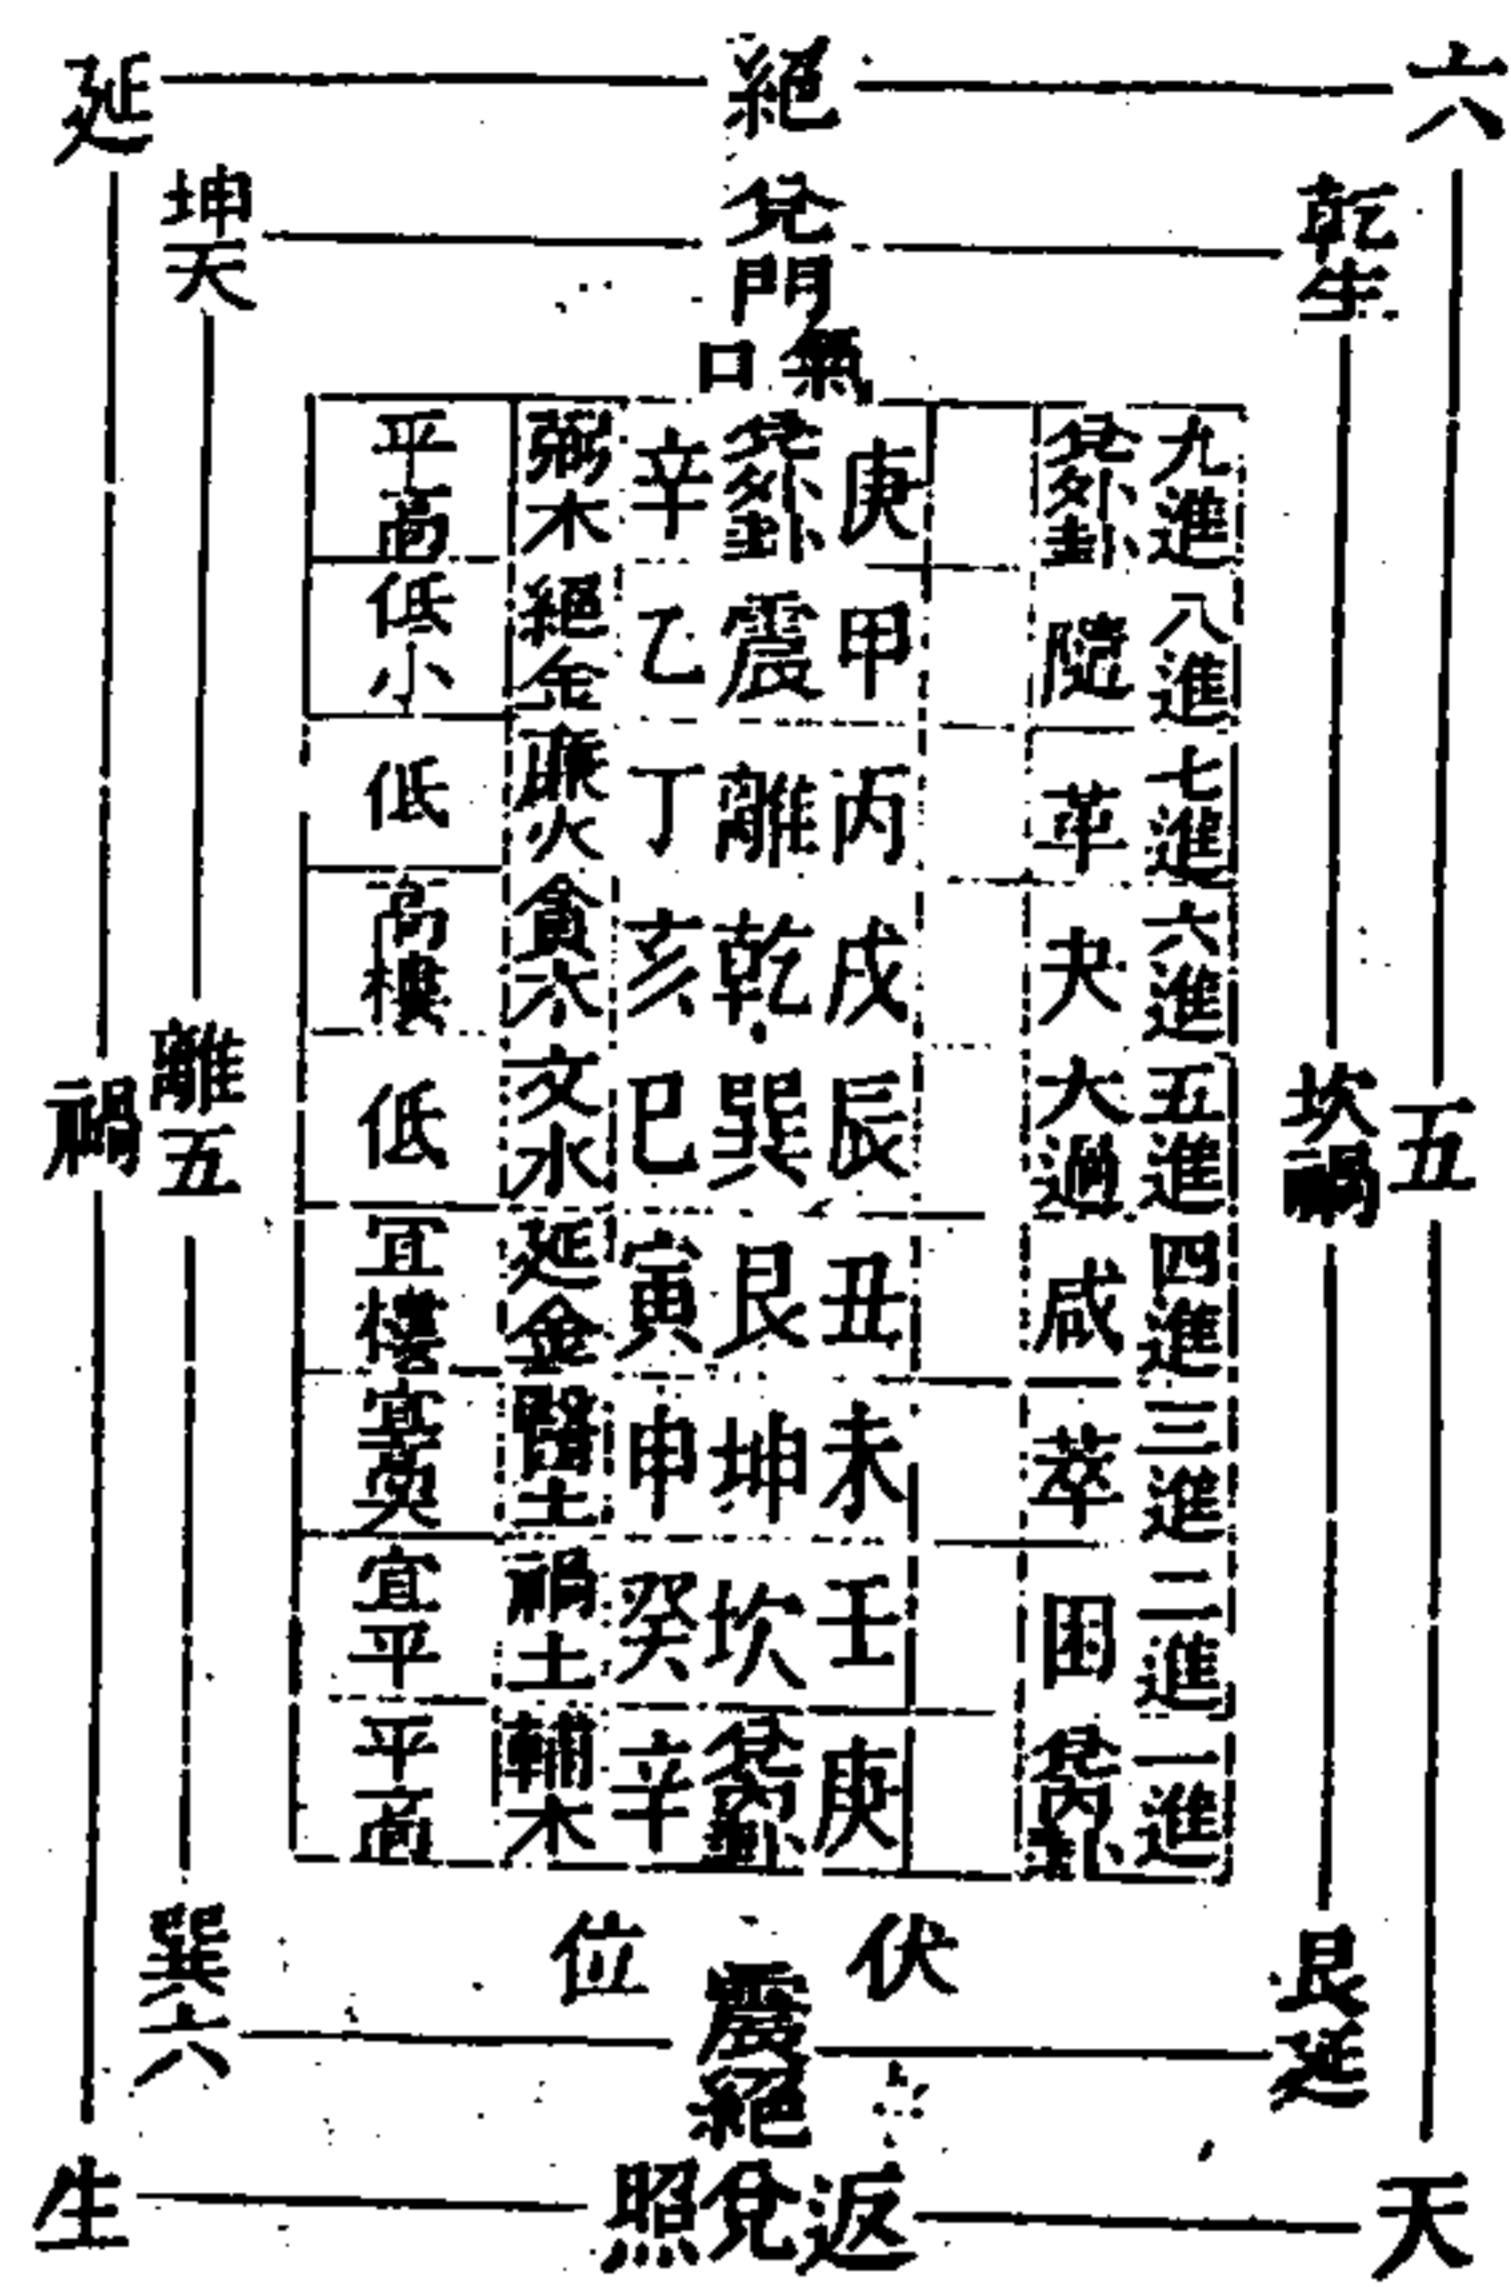 六 絕 延
乾生 兌門 坤天
氣口
九進 兌外卦 庚 兌外卦 辛 弼木 平高
八進 隨 甲 震 乙 絕金 低小
七進 革 丙 離 丁 廉火 低
六進 夬 戌 乾 亥 貪木 高樓
五進 大過 辰 巽 巳 文水 低
四進 咸 丑 艮 寅 延金 宜樓
三進 萃 未 坤 申 土 宜
二進 困 壬 坎 癸 禍土 宜平
一進 兌內卦 庚 兌內卦 辛 輔木 平高
五 坎禍 離五 禍
伏位
艮延 震絕 巽六
天 返兌照 生